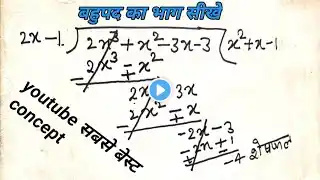 बहुपद का भाग सीखे
2x-1 ) 2x³ + x² - 3x - 3 ( x² + x - 1
2x³ ∓ x²
2x² 3x
2x² ∓ x
-2x - 3
-2x ± 1
-4 शेषफल
youtube सबसे बेस्ट
concept